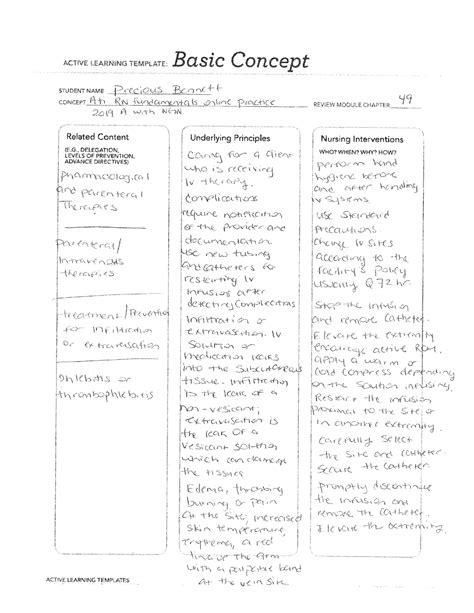 ACTIVE LEARNING TEMPLATE: Basic Concept
STUDENT NAME Precious Bennett
CONCEPT Ati RN fundamentals online practice
2019 A with NGN
REVIEW MODULE CHAPTER 49
Related Content
(E.G., DELEGATION,
LEVELS OF PREVENTION,
ADVANCE DIRECTIVES)
pharmacological
and parenteral
Therapies
parenteral/
Intravenous
therapies
treatment/Prevention
for infiltration
or extravasation
Phlebitis or
thrombophlebitis
Underlying Principles
Caring for a client
who is receiving
IV therapy.
Complications
require notification
of the provider and
documentation
use new tubing
and catheters for
restarting IV
infusions after
detecting complications
Infiltration or
extravasation. IV
Solution or
medication leaks
into the Subcutaneous
tissue. Infiltration
is the leak of a
non-vesicant,
extravasation is
the leak of a
vesicant solution
which can damage
the tissues
Edema, throbbing
burning or pain
At the site, increased
skin temperature,
Erythema, a red
line up the arm
with a palpable band
At the vein site
Nursing Interventions
WHO? WHEN? WHY? HOW?
perform hand
hygiene before
and after handling
IV Systems
use Standard
Precautions.
change IV sites
According to the
facility's policy
usually Q 72 hr.
Stop the infusion
and remove catheter.
Elevate the extremity
encourage active ROM.
apply a warm or
cold compress depending
on the solution infusing.
Restart the infusion
proximal to the site, or
in another extremity.
Carefully select
the site and catheter.
Secure the catheter.
promptly discontinue
the infusion and
remove the catheter.
Elevate the extremity.
ACTIVE LEARNING TEMPLATES